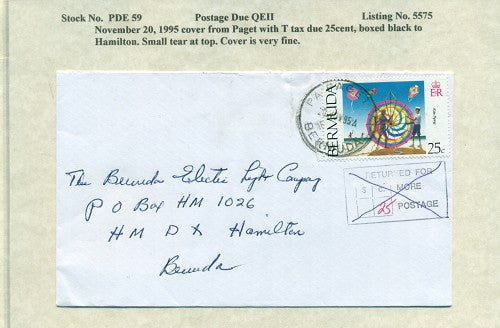 Stock No. PDE 59 Postage Due QEII Listing No. 5575
November 20, 1995 cover from Paget with T tax due 25cent, boxed black to
Hamilton. Small tear at top. Cover is very fine.
PAGET
BERMUDA
BERMUDA
25c
RETURNED FOR
S. C. MORE
25 POSTAGE
The Bermuda Electric Light Company
P O Box HM 1026
H M D X Hamilton
Bermuda